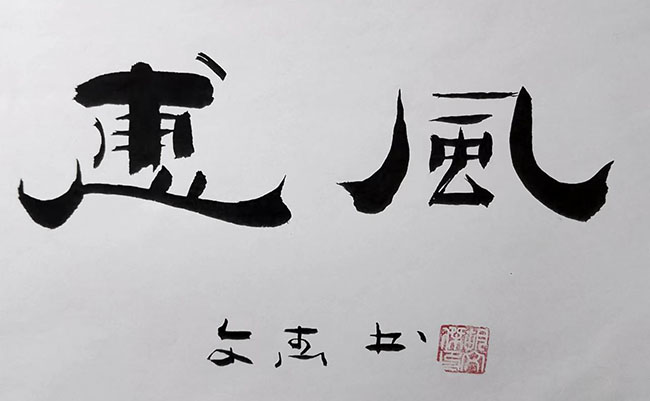 惠風
文惠书